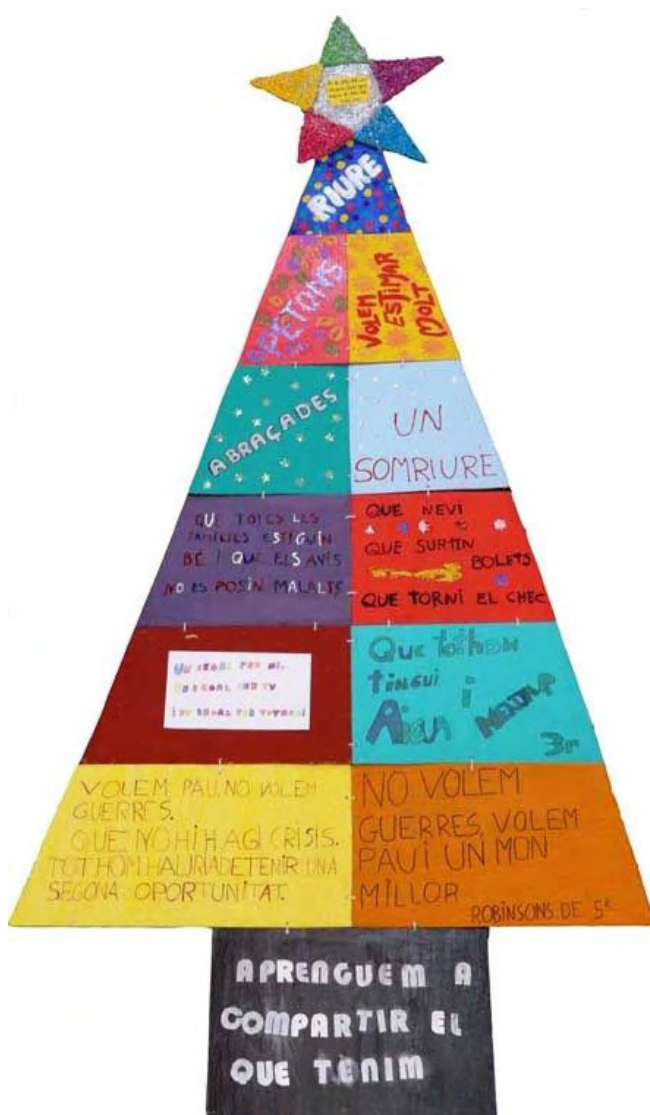 RIURE
PETONS
VOLEM
ESTIMAR
MOLT
ABRAÇADES
UN
SOMRIURE
QUE TOTES LES
FAMÍLIES ESTIGUIN
BÉ I QUE ELS AVIS
NO ES POSIN MALALTS
QUE NEVI
QUE SURTIN
BOLETS
QUE TORNI EL CHEC
UN REGAL PER MI,
UN REGAL PER TU
I UN REGAL PER TOTHOM
Que tothom
tingui i
Aigua Menjar
3r
VOLEM PAU. NO VOLEM
GUERRES.
QUE NO HI HAGI CRISIS.
TOTHOM HAURIA DE TENIR UNA
SEGONA OPORTUNITAT.
NO VOLEM
GUERRES, VOLEM
PAU I UN MON
MILLOR
ROBINSONS DE 5è
APRENGUEM A
COMPARTIR EL
QUE TENIM